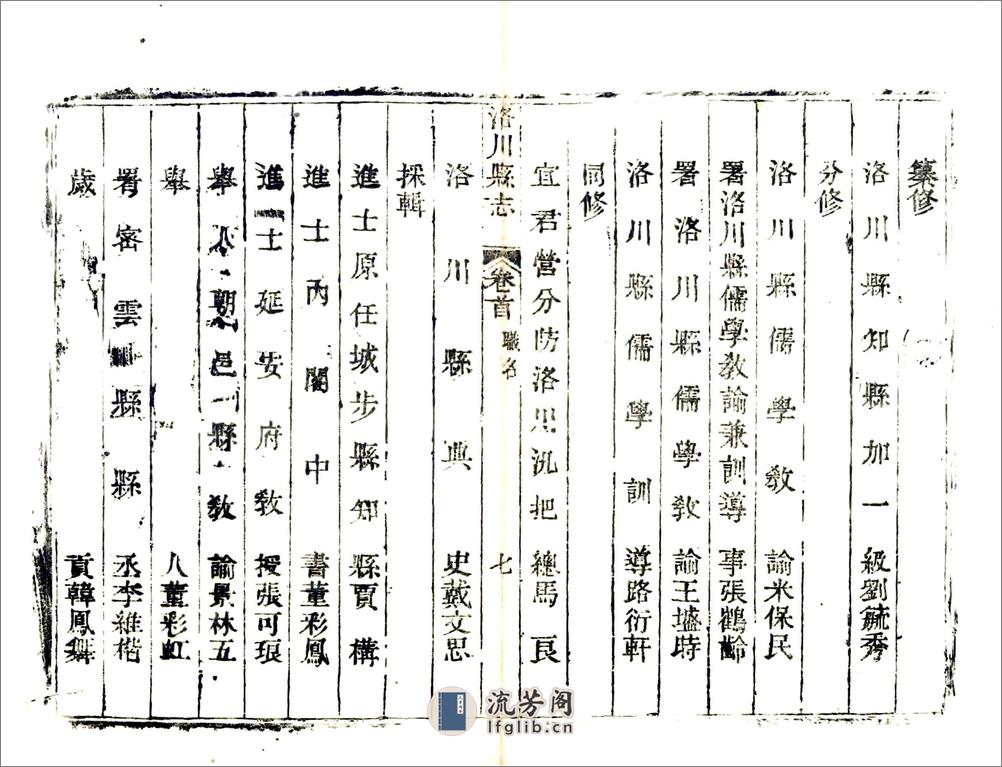 纂修
洛川縣知縣加一級劉毓秀
分修
洛川縣儒學教諭米保民
署洛川縣儒學教諭兼訓導事張鶴齡
署洛川縣儒學教諭王墭時
洛川縣儒學訓導路衍軒
同修
宜君營分防洛川汛把總馬良
洛川縣典史戴文思
洛川縣志 卷首 職名 七
採輯
進士原任城步縣知縣賈構
進士內閣中書董彩鳳
進士延安府教授張可琅
舉人朝邑縣教諭景林五
舉人董彩虹
署密雲縣縣丞李維楷
歲貢韓鳳舞
流芳阁
lfglib.cn